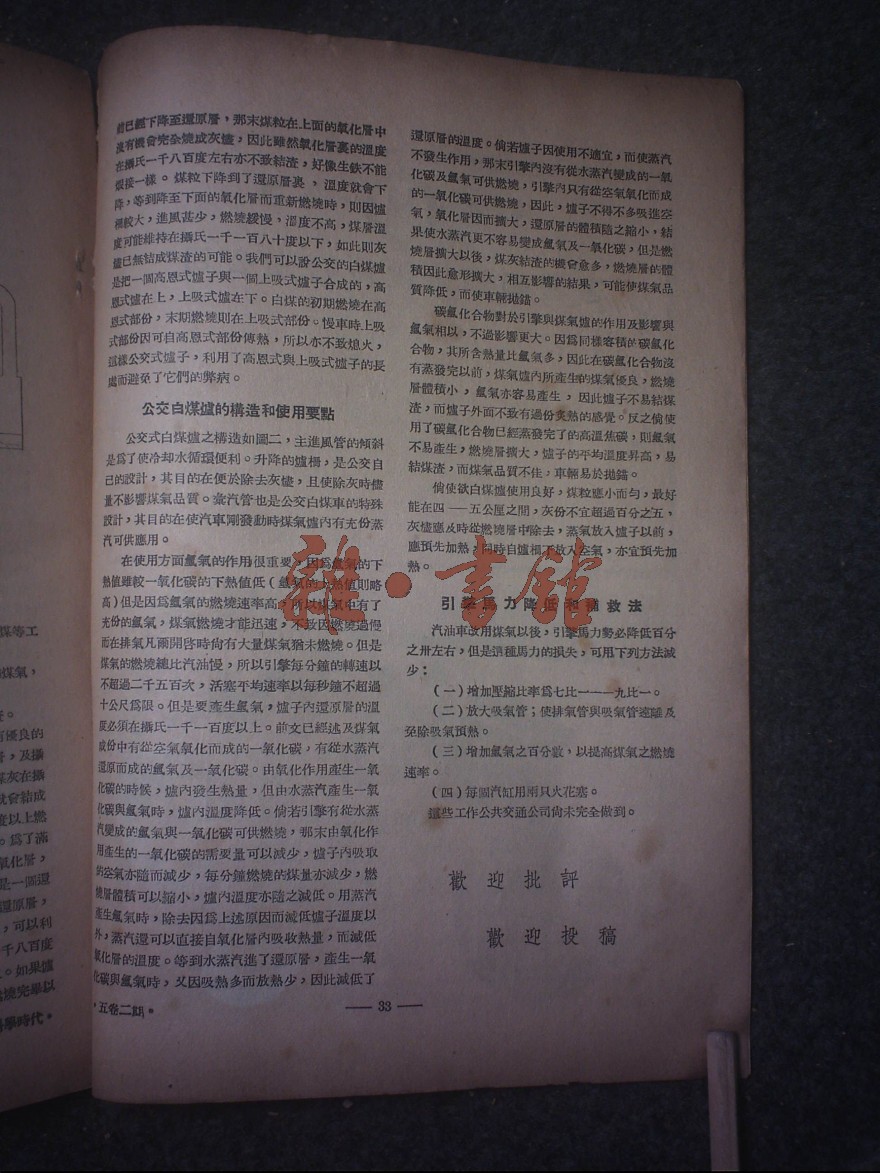 煤等工
煤氣，
有優良的
層，及攝
煤灰在攝
就會結成
度以上燃
。爲了滿
氧化層，
是一個還
還原層，
，可以利
千八百度
。如果爐
燃燒完畢以
學時代・
已經下降至還原層，那末煤粒在上面的氧化層中
沒有機會完全燒成灰燼，因此雖然氧化層裏的溫度
在攝氏一千八百度左右亦不致結渣，好像生鉄不能
煅接一樣。煤粒下降到了還原層裏，溫度就會下
降，等到降至下面的氧化層而重新燃燒時，則因爐
柵較大，進風甚少，燃燒緩慢，溫度不高，煤層溫
度可能維持在攝氏一千一百八十度以下，如此則灰
燼已無結成煤渣的可能。我們可以說公交的白煤爐
是把一個高恩式爐子與一個上吸式爐子合成的，高
恩式爐在上，上吸式爐在下。白煤的初期燃燒在高
恩式部份，末期燃燒則在上吸式部份。慢車時上吸
式部份因可自高恩式部份傳熱，所以亦不致熄火，
這樣公交式爐子，利用了高恩式與上吸式爐子的長
處而避免了它們的弊病。
公交白煤爐的構造和使用要點
公交式白煤爐之構造如圖二，主進風管的傾斜
是爲了使冷却水循環便利。升降的爐柵，是公交自
己的設計，其目的在便於除去灰燼，且使除灰時儘
量不影響煤氣品質。彙汽管也是公交白煤車的特殊
設計，其目的在使汽車剛發動時煤氣爐內有充份蒸
汽可供應用。
在使用方面氫氣的作用很重要，因爲氫氣的下
熱值雖較一氧化碳的下熱值低（氫氣的上熱值則略
高）但是因爲氫氣的燃燒速率高，所以煤氣中有了
充份的氫氣，煤氣燃燒才能迅速，不致因燃燒過慢
而在排氣凡爾開啓時尙有大量煤氣猶未燃燒。但是
煤氣的燃燒總比汽油慢，所以引擎每分鐘的轉速以
不超過二千五百次，活塞平均速率以每秒鐘不超過
十公尺爲限。但是要產生氫氣，爐子內還原層的溫
度必須在攝氏一千一百度以上。前文已經述及煤氣
成份中有從空氣氧化而成的一氧化碳，有從水蒸汽
還原而成的氫氣及一氧化碳。由氧化作用產生一氧
化碳的時候，爐內發生熱量，但由水蒸汽產生一氧
化碳與氫氣時，爐內溫度降低。倘若引擎有從水蒸
汽變成的氫氣與一氧化碳可供燃燒，那末由氧化作
用產生的一氧化碳的需要量可以減少，爐子內吸取
的空氣亦隨而減少，每分鐘燃燒的煤量亦減少，燃
燒層體積可以縮小，爐內溫度亦隨之減低。用蒸汽
產生氫氣時，除去因爲上述原因而減低爐子溫度以
外，蒸汽還可以直接自氧化層內吸收熱量，而減低
氧化層的溫度。等到水蒸汽進了還原層，產生一氧
化碳與氫氣時，又因吸熱多而放熱少，因此減低了
還原層的溫度。倘若爐子因使用不適宜，而使蒸汽
不發生作用，那末引擎內沒有從水蒸汽變成的一氧
化碳及氫氣可供燃燒，引擎內只有從空氣氧化而成
的一氧化碳可供燃燒，因此，爐子不得不多吸進空
氣，氧化層因而擴大，還原層的體積隨之縮小，結
果使水蒸汽更不容易變成氫氣及一氧化碳，但是燃
燒層擴大以後，煤灰結渣的機會愈多，燃燒層的體
積因此愈形擴大，相互影響的結果，可能使煤氣品
質降低，而使車輛拋錨。
碳氫化合物對於引擎與煤氣爐的作用及影響與
氫氣相似，不過影響更大。因爲同樣容積的碳氫化
合物，其所含熱量比氫氣多，因此在碳氫化合物沒
有蒸發完以前，煤氣爐內所產生的煤氣優良，燃燒
層體積小，氫氣亦容易產生，因此爐子不易結煤
渣，而爐子外面不致有過份炙熱的感覺。反之倘使
用了碳氫化合物已經蒸發完了的高溫焦碳，則氫氣
不易產生，燃燒層擴大，爐子的平均溫度昇高，易
結煤渣，而煤氣品質不佳，車輛易於拋錨。
倘使欲白煤爐使用良好，煤粒應小而勻，最好
能在四——五公厘之間，灰份不宜超過百分之五，
灰燼應及時從燃燒層中除去，蒸氣放入爐子以前，
應預先加熱，同時自爐柵下放入空氣，亦宜預先加
熱。
引擎馬力降低和補救法
汽油車改用煤氣以後，引擎馬力勢必降低百分
之卅左右，但是這種馬力的損失，可用下列方法減
少：
（一）增加壓縮比率爲七比一——九比一。
（二）放大吸氣管；使排氣管與吸氣管遠離及
免除吸氣預熱。
（三）增加氫氣之百分數，以提高煤氣之燃燒
速率。
（四）每個汽缸用兩只火花塞。
這些工作公共交通公司尙未完全做到。
歡迎批評
歡迎投稿
・五卷二期・
—— 33 ——
雜・書館